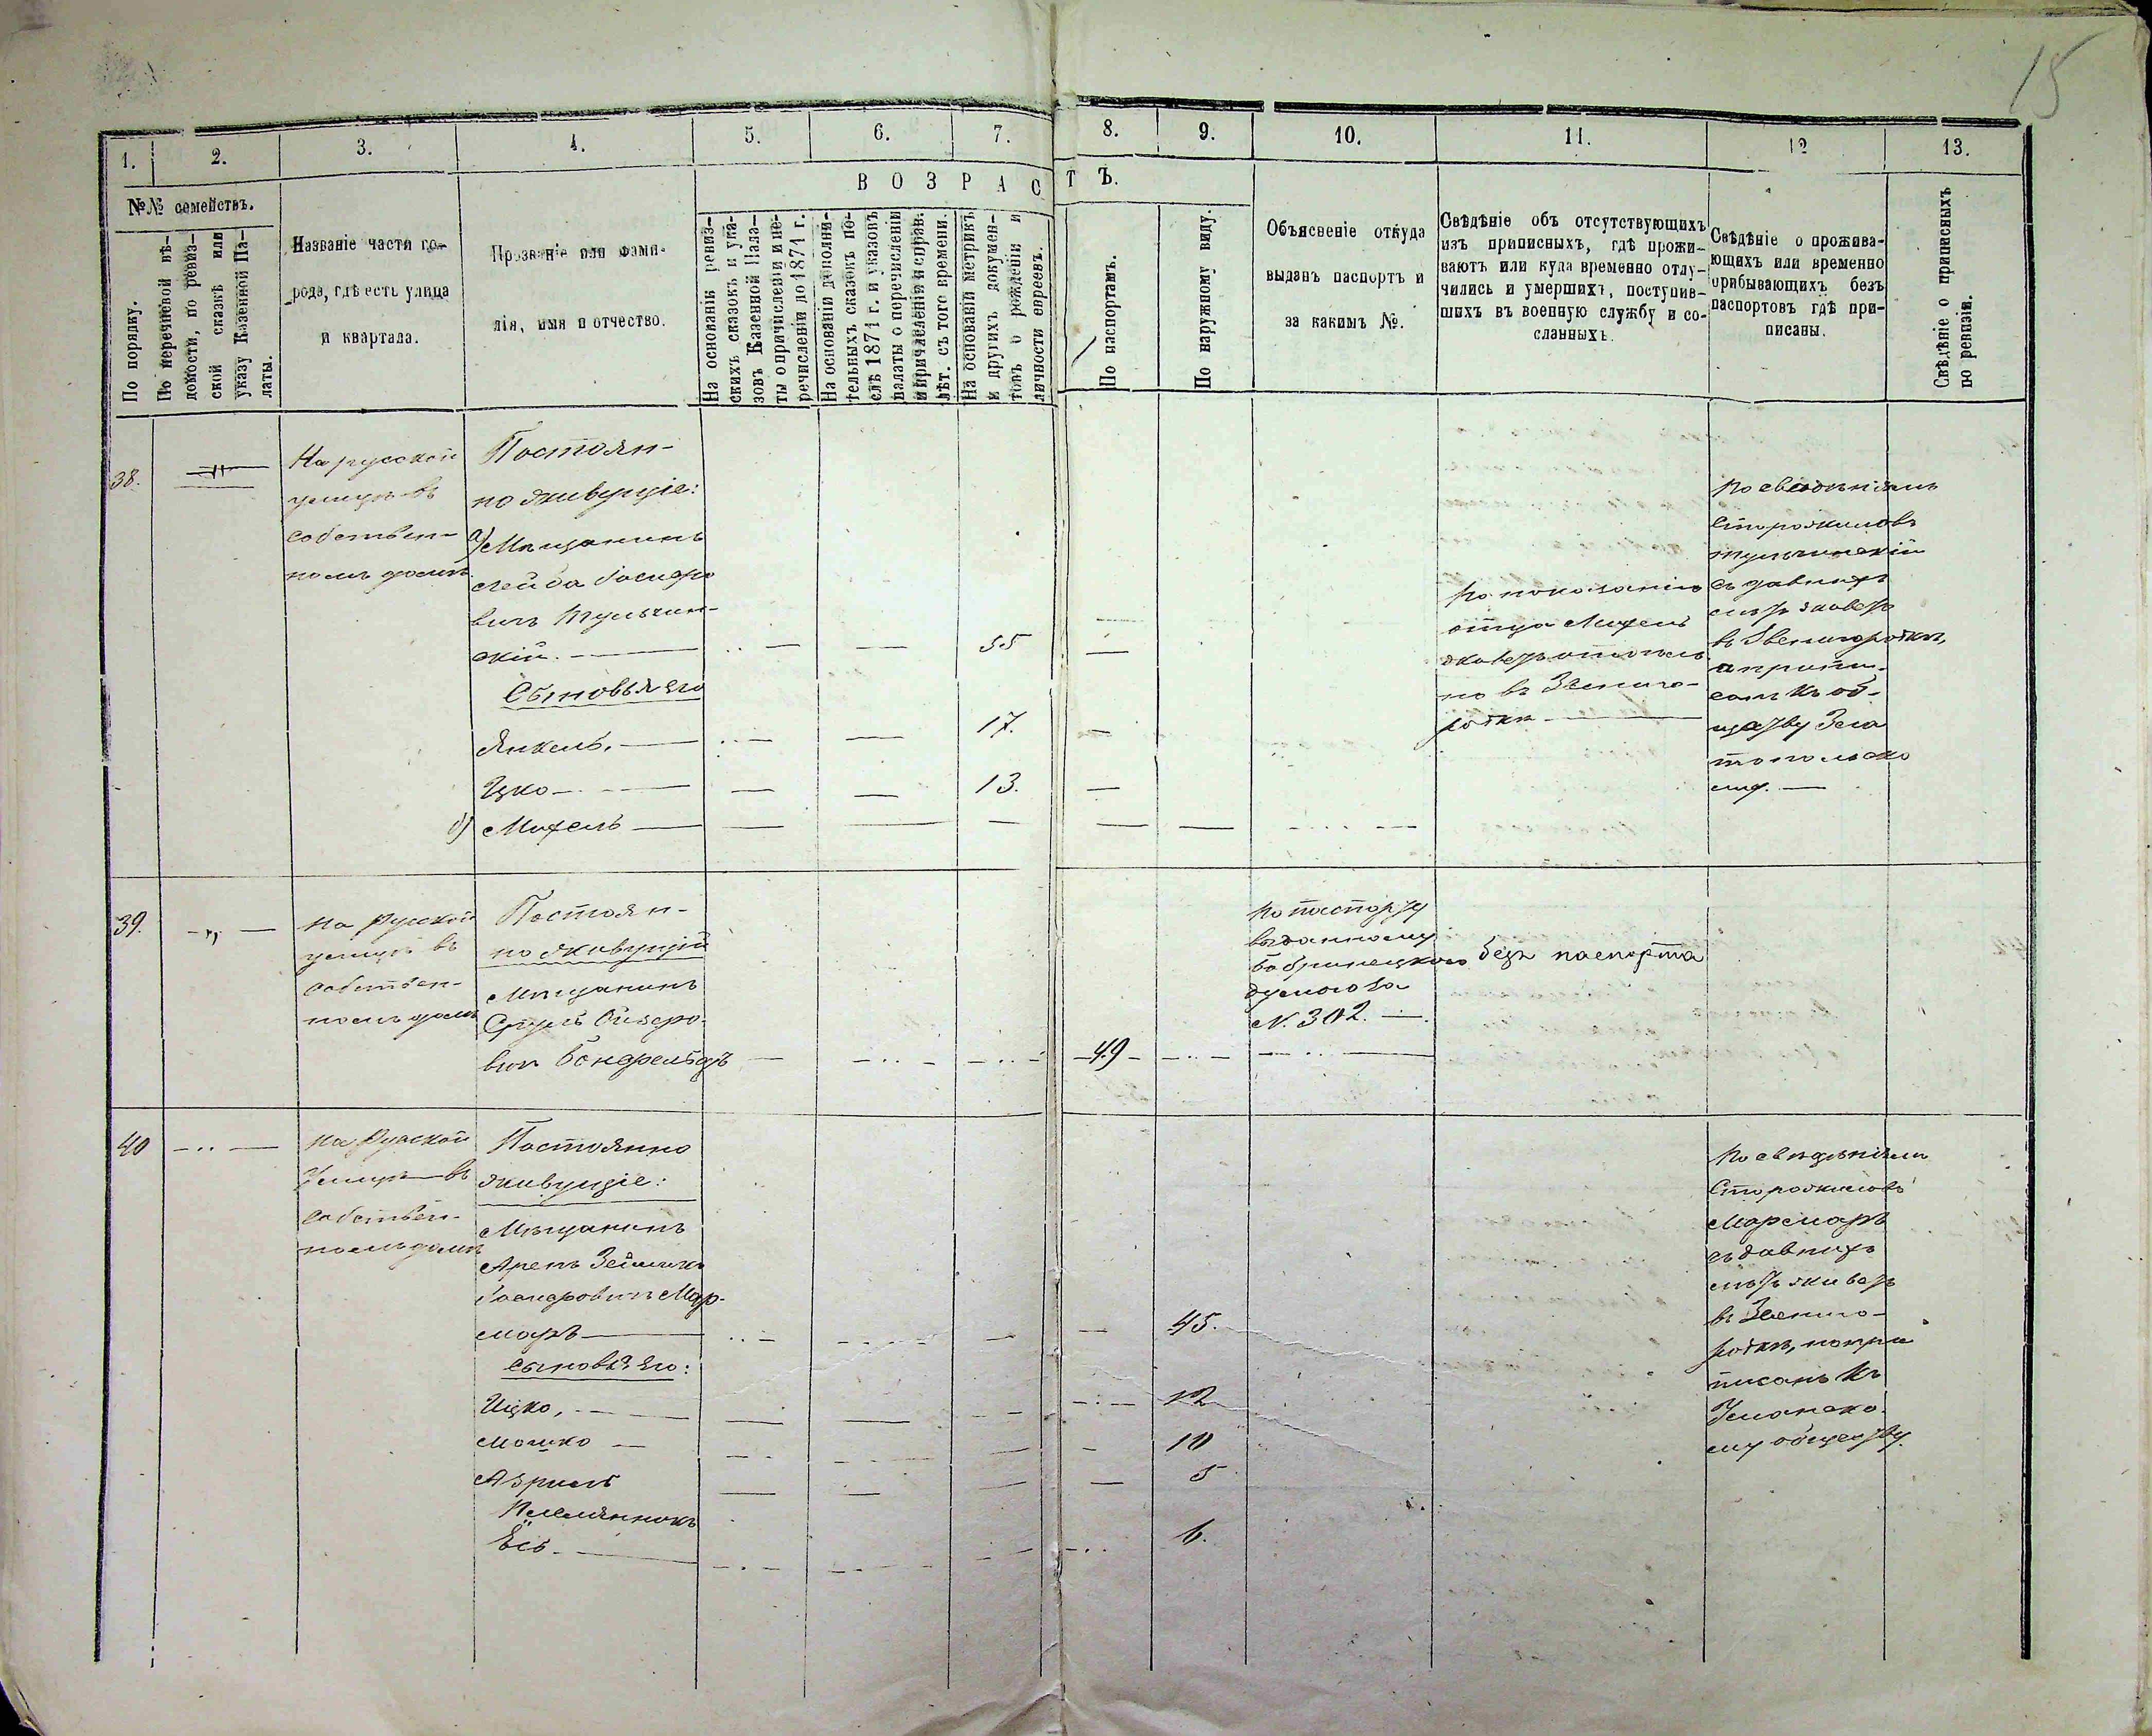 15
1. 2. 3. 4. 5. 6. 7. 8. 9. 10. 11. 12 13.
№№ семействъ.
По порядку.
По перечневой вѣ-
домости, по ревиз-
ской сказкѣ или
указу Казенной Па-
латы.
Названіе части го-
рода, гдѣ есть улица
и квартала.
Прозваніе или фами-
лія, имя и отчество.
ВОЗРАСТЪ.
На основаніи ревиз-
скихъ сказокъ и ука-
зовъ Казенной Пала-
ты о причисленіи и пе-
речисленіи до 1871 г.
На основаніи дополни-
тельныхъ сказокъ по-
слѣ 1871 г. и указовъ
палаты о перечисленіи
и причисленіи и справ.
лѣт. съ того времени.
На основаніи метрикъ
и другихъ докумен-
товъ о рожденіи и
личности евреевъ.
По паспортамъ.
По наружному виду.
Объясненіе откуда
выданъ паспортъ и
за какимъ №.
Свѣдѣніе объ отсутствующихъ
изъ приписныхъ, гдѣ прожи-
ваютъ или куда временно отлу-
чились и умершихъ, поступив-
шихъ въ военную службу и со-
сланныхъ.
Свѣдѣніе о прожива-
ющихъ или временно
прибывающихъ безъ
паспортовъ гдѣ при-
писаны.
Свѣдѣніе о приписныхъ
по ревизіи.
38.
На русской
улицѣ въ
собствен-
номъ домѣ
Постоян-
но живущіе:
а) Мѣщанинъ
Лейба
вичъ Тульчин-
скій. — 55
Сыновья его
Янкель. — 17.
Ицко — 13.
б) Михель —
По показанію
отца Михель
живетъ
но въ Звениго-
родкѣ —
По сведѣніямъ
старожиловъ
тульчинскій
съ давнихъ
лѣтъ живетъ
въ Звенигородкѣ,
а припи-
санъ къ об-
щтву Зла
топольско
му. —
39.
На Русской
улицѣ въ
собствен-
номъ домѣ
Постоян-
но живущій
Мѣщанинъ
Сруль Ойзеро-
вич Бонфельдъ — 49 —
По паспорту
выданному
Бобринецкою
думою за
N. 302. —
безъ паспорта
40
На Русской
Улицѣ въ
собствен-
номъ домѣ
Постоянно
живущіе:
Мѣщанинъ
Аренъ
Мар-
маръ — 45.
Сыновья его:
Ицко, — 12
Мошко — 10
Азриль 5
Племянникъ
Ёсь — 6.
По свѣдѣніямъ
Старожиловъ
Мармаръ
съ давнихъ
лѣтъ живетъ
въ Звениго-
родкѣ, но при
писанъ къ
Уманско-
му обществу.